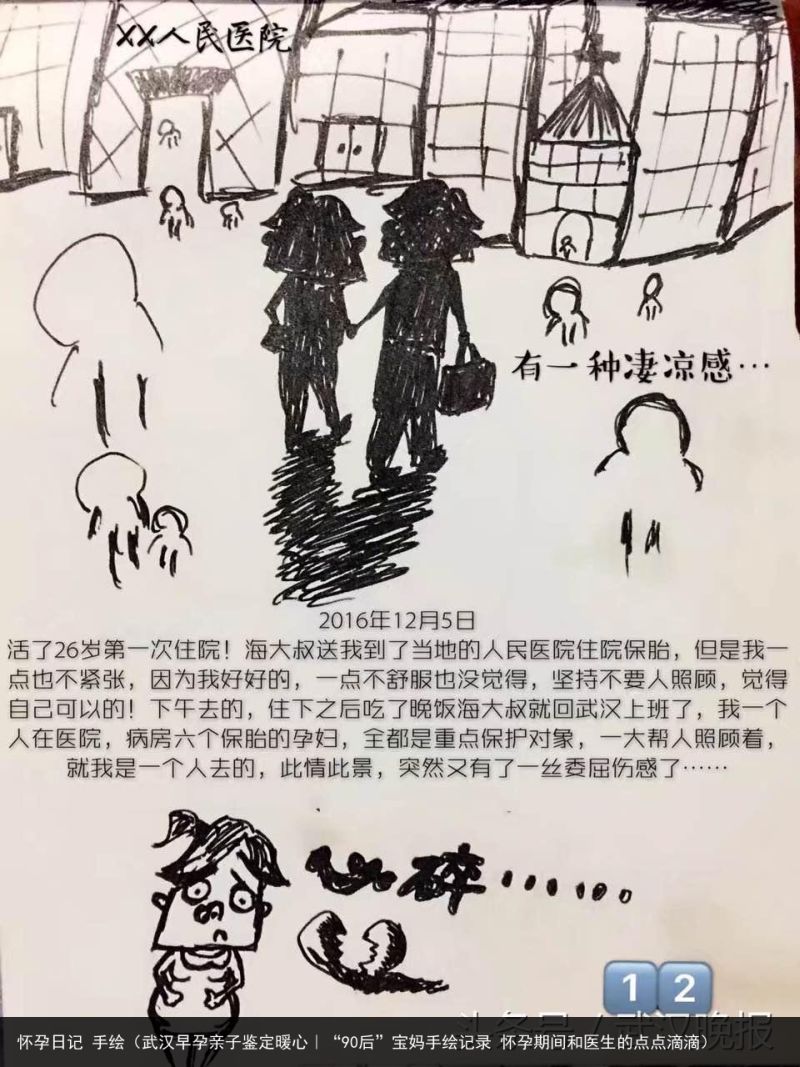 XX人民医院
有一种凄凉感…
2016年12月5日
活了26岁第一次住院！海大叔送我到了当地的人民医院住院保胎，但是我一
点也不紧张，因为我好好的，一点不舒服也没觉得，坚持不要人照顾，觉得
自己可以的！下午去的，住下之后吃了晚饭海大叔就回武汉上班了，我一个
人在医院，病房六个保胎的孕妇，全都是重点保护对象，一大帮人照顾着，
就我是一个人去的，此情此景，突然又有了一丝委屈伤感了……
心碎……
12
头条号 / 武汉晚报
怀孕日记 手绘（武汉早孕亲子鉴定暖心｜“90后”宝妈手绘记录 怀孕期间和医生的点点滴滴）